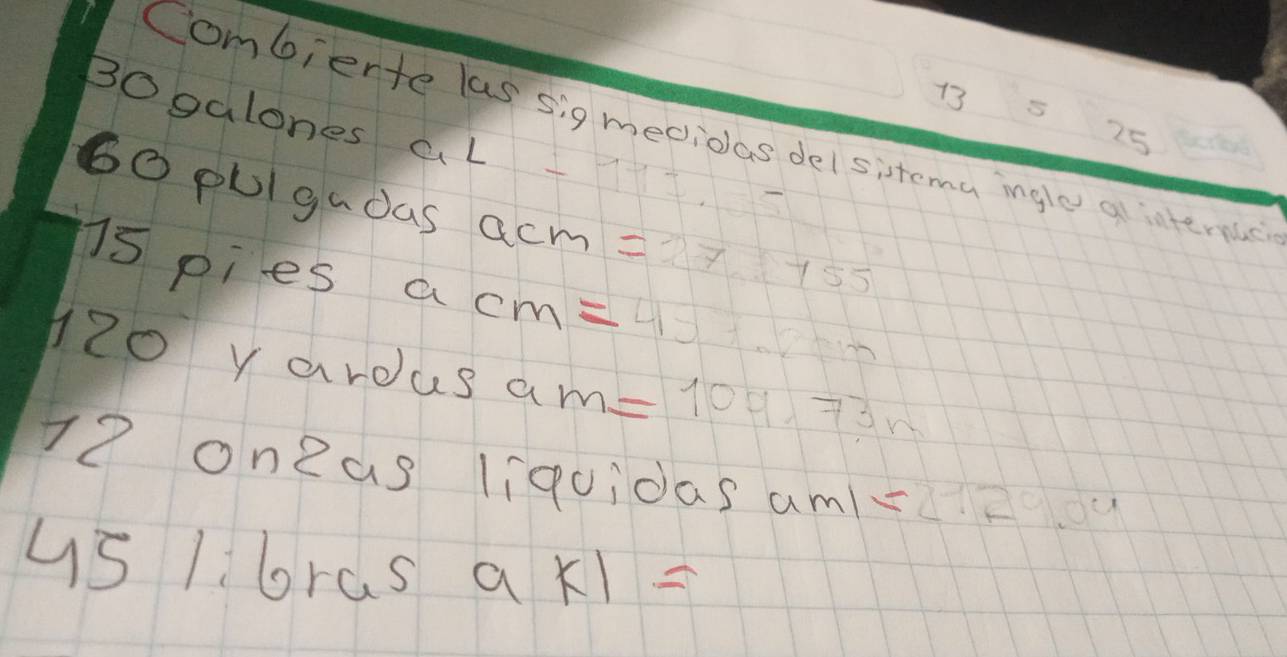 Combierte las sig medidas del sistema ingle al
13 5 25
30 galones a L =
60 pulgadas a cm = 155
15 pies a cm =
120 yardas a m = 109.73m
12 onzas liquidas a ml =
45 libras a kl =